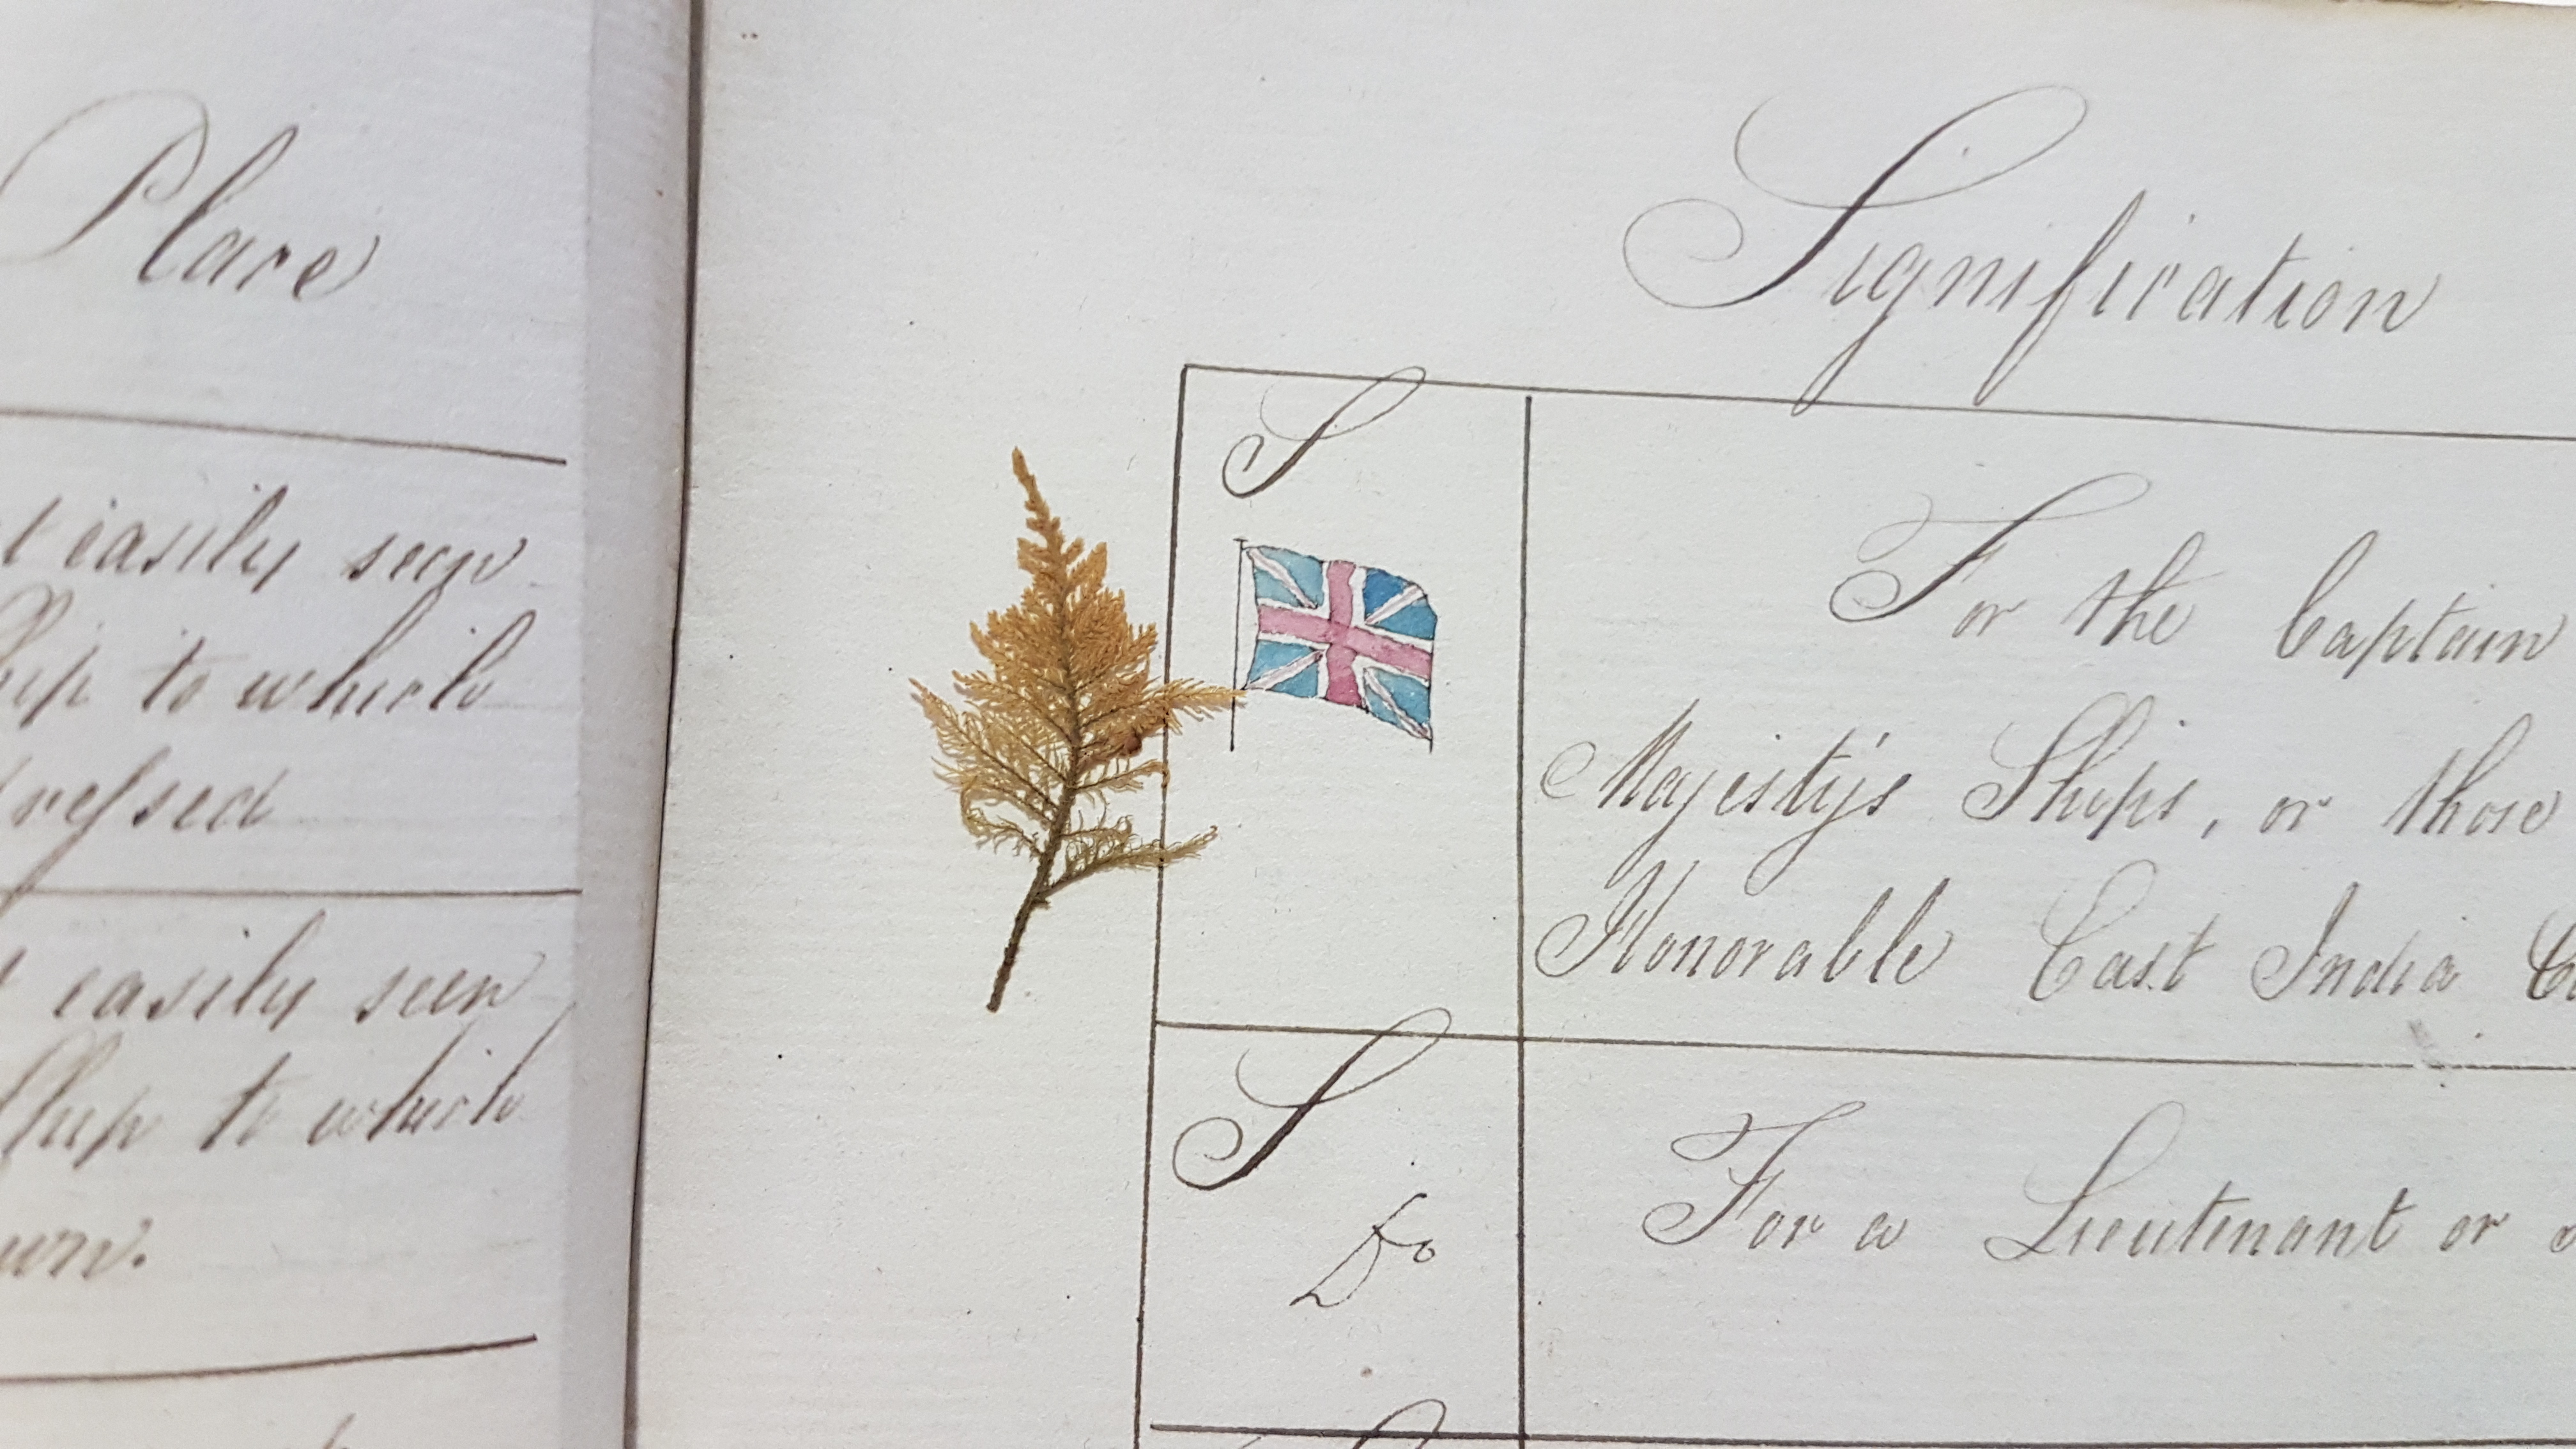 Place
easily seen
Ship to which
easily seen
Ship to which
Signification
S
For the Captain
Majesty's Ships, or those
Honorable East India
S
Do
For a Lieutenant or